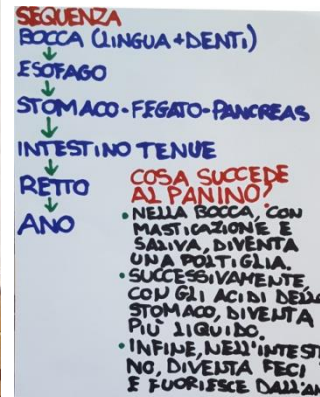 SEQUENZA
BOCCA (LINGUA+DENTI)
ESOFAGO
STOMACO-FEGATO-PANCREAS
INTESTINO TENUE
RETTO
ANO
COSA SUCCEDE
AL PANINO?
• NELLA BOCCA, CON
MASTICAZIONE E
SALIVA, DIVENTA
UNA POLTIGLIA.
• SUCCESSIVAMENTE,
CON GLI ACIDI DELLO
STOMACO, DIVENTA
PIÙ LIQUIDO.
• INFINE, NELL'INTESTI
NO, DIVENTA FECI
E FUORIESCE DALL'AN